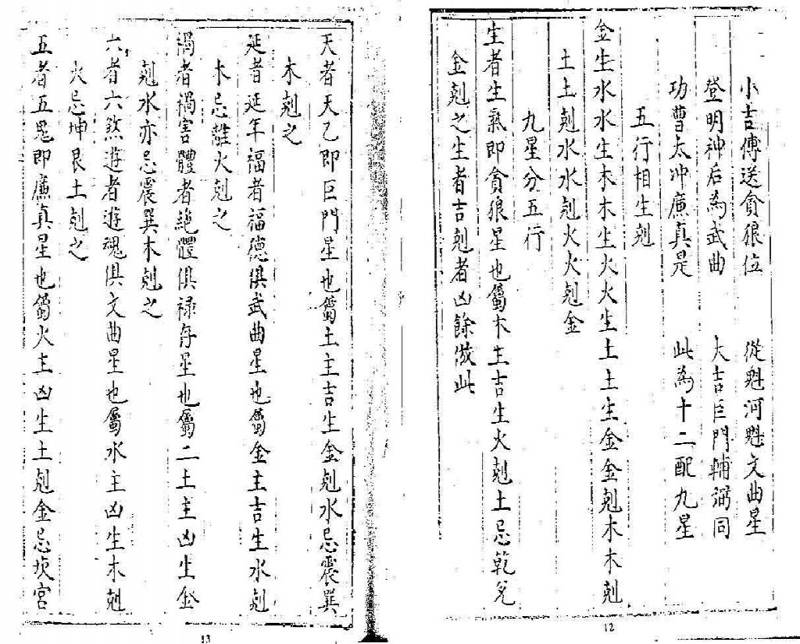 小吉傳送貪狼位 從魁河魁文曲星
登明神后為武曲 大吉巨門輔弼同
功曹太冲廉真是 此為十二配九星
五行相生剋
金生水水生木木生火火生土土生金金剋木木剋
土土剋水水剋火火剋金
九星分五行
生者生氣即貪狼星也屬木主吉生火剋土忌乾兌
金剋之生者吉剋者凶餘倣此
12
天者天乙即巨門星也屬土主吉生金剋水忌震巽
木剋之
延者延年福者福德俱武曲星也屬金主吉生水剋
木忌離火剋之
禍者禍害體者絶體俱禄存星也屬二土主凶生金
剋水亦忌震巽木剋之
六者六煞遊者遊魂俱文曲星也屬水主凶生木剋
火忌坤艮土剋之
五者五鬼即廉真星也屬火主凶生土剋金忌坎宮
13